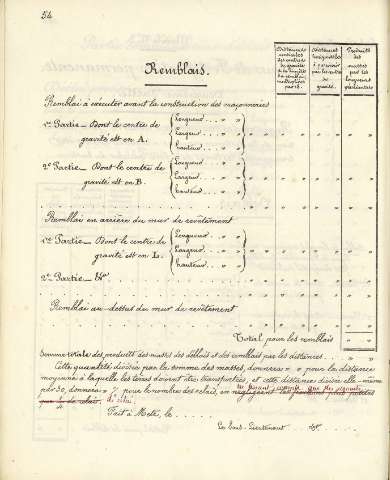 54
Remblais.
Distances
verticales
des centres
de gravité
Distances
horizontales
à parcourir
par les centres
de
gravité.
Produits
des
masses
par les
longueurs
précédentes
Remblai à exécuter avant la construction des maçonneries
1re Partie — Dont le centre de
gravité est en A.
Longueur . . . " "
Largeur . . . " "
hauteur . . . " "
2e Partie — Dont le centre de
gravité est en B.
Longueur . . . " "
Largeur . . . " "
hauteur . . . " "
Remblai en arrière du mur de revêtement
1re Partie — Dont le centre de
gravité est en L.
Longueur . . . " "
Largeur . . . " "
hauteur . . . " "
2e Partie — &a
Remblai au dessus du mur de revêtement
Total pour les remblais
Somme totale des produits des masses des déblais et des remblais par les distances . . . " "
Cette quantité divisée par la somme des masses, donnera " " pour la distance
moyenne à laquelle les terres doivent être transportées, et cette distance divisée elle-même
par 30, donnera " ", pour le nombre des relais, en négligeant les fractions plus petites
que 1/4 de relais.
en faisant compte que
Fait à Metz, le . . . . . .
Le Sous-Lieutenant